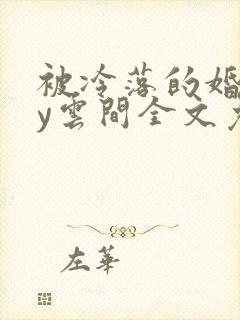 被冷落的婚
y雲間全文免
左華